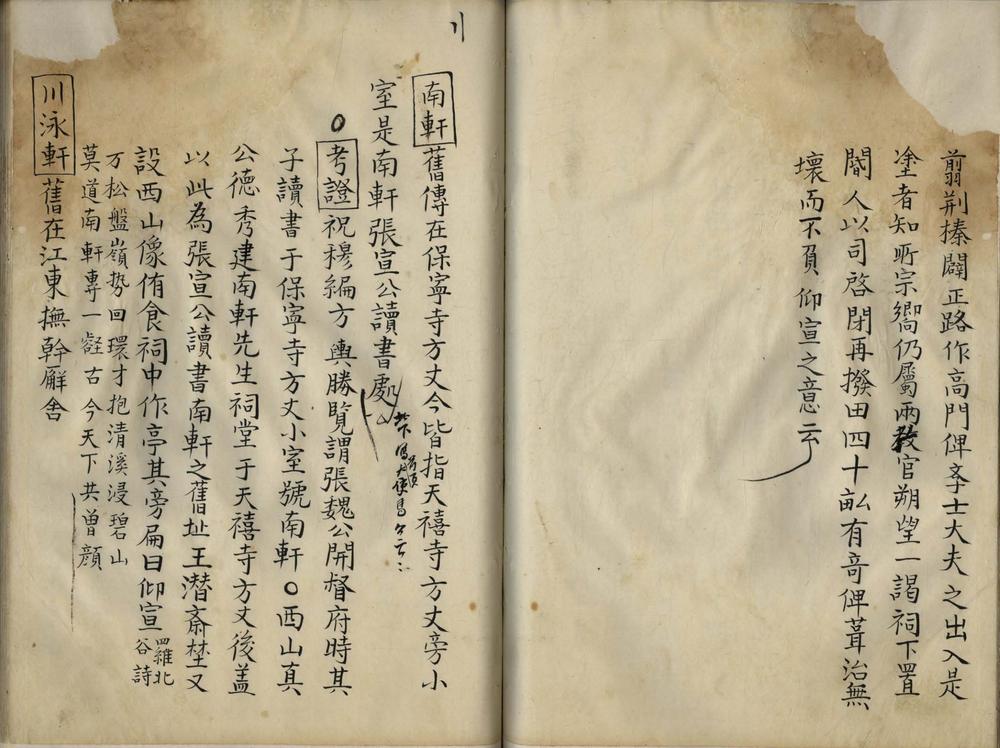 翦荆搸闢正路作高門俾孚士大夫之出入是
塗者知所宗嚮仍屬兩教官朔望一謁祠下置
閽人以司啓閉再撥田四十畝有竒俾葺治無
壞而不負仰宣之意云
南軒舊傳在保寧寺方丈今皆指天禧寺方丈旁小
室是南軒張宣公讀書處
考證祝穆編方輿勝覽謂張魏公開督府時其
子讀書于保寧寺方丈小室號南軒〇西山真
公德秀建南軒先生祠堂于天禧寺方丈後盖
以此為張宣公讀書南軒之舊址王潛齋埜又
設西山像侑食祠中作亭其旁扁曰仰宣羅北
谷詩
万松盤嶺势回環才抱清溪浸碧山
莫道南軒專一壑古今天下共曾顔
川泳軒舊在江東撫幹廨舍